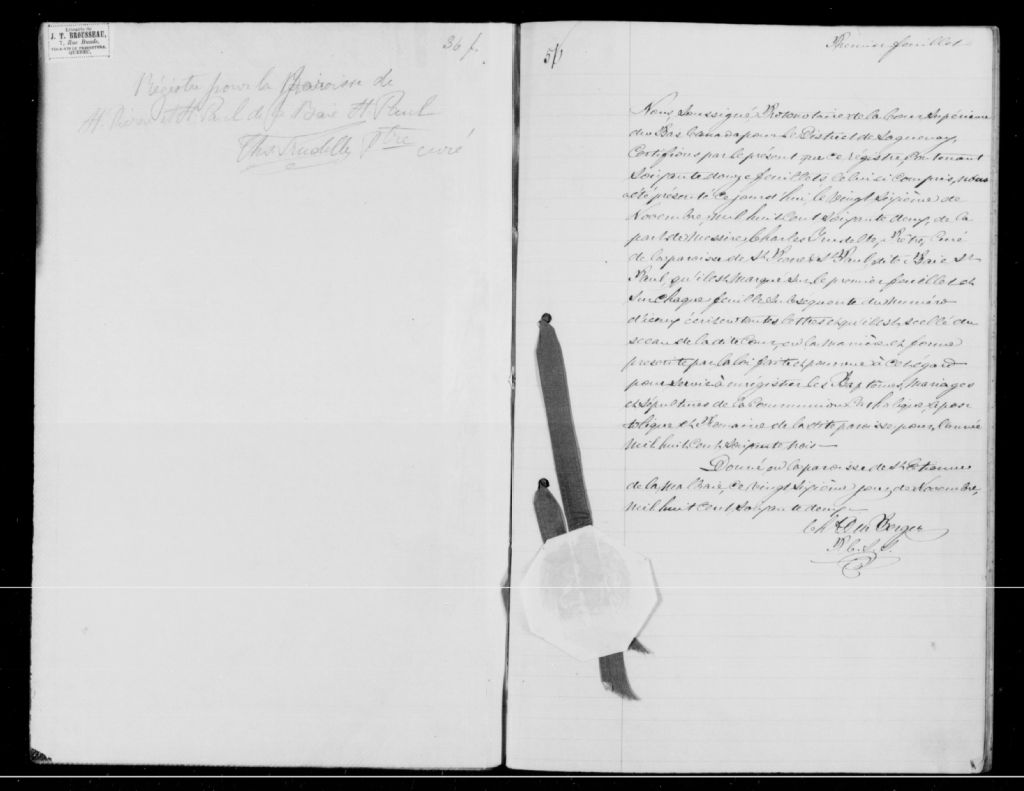 Librairie de
J. T. BROUSSEAU,
7, Rue Buade,
VIS-A-VIS LE PRESBYTERE,
QUEBEC.
36 f.
Régistre pour la Paroisse de
St Pierre et St Paul de la Baie St Paul
Chs Trudelle Ptre curé
Premier feuillet
Nous, soussigné, Protonotaire de la Cour Supérieure
du Bas Canada pour le District de Saguenay,
Certifions par le présent que ce régistre, contenant
soixante douze feuillets celui ci compris, nous
a été présenté ce jourd'hui, le vingt sixième de
Novembre, mil huit cent soixante deux, de la
part de Messire Charles Trudelle, Prêtre, Curé
de la paroisse de St Pierre & St Paul, dite Baie St
Paul, qu'il est marqué sur le premier feuillet et
sur chaque feuillet subsequent du Numéro
d'iceux écrit en toutes lettres et qu'il est scellé du
sceau de la dite Cour, en la manière et forme
prescrite par la loi faite et pourvue à cet égard
pour servir à enrégistrer les Baptêmes, Mariages
et Sépultures de la Communion Catholique, Apos
tolique et Romaine de la dite paroisse pour l'année
mil huit cent soixante trois
Donné en la paroisse de St Etienne
de la Malbaie, ce vingt sixième jour de Novembre,
mil huit cent soixante deux
Chs Du Berger
P. C. S. S.